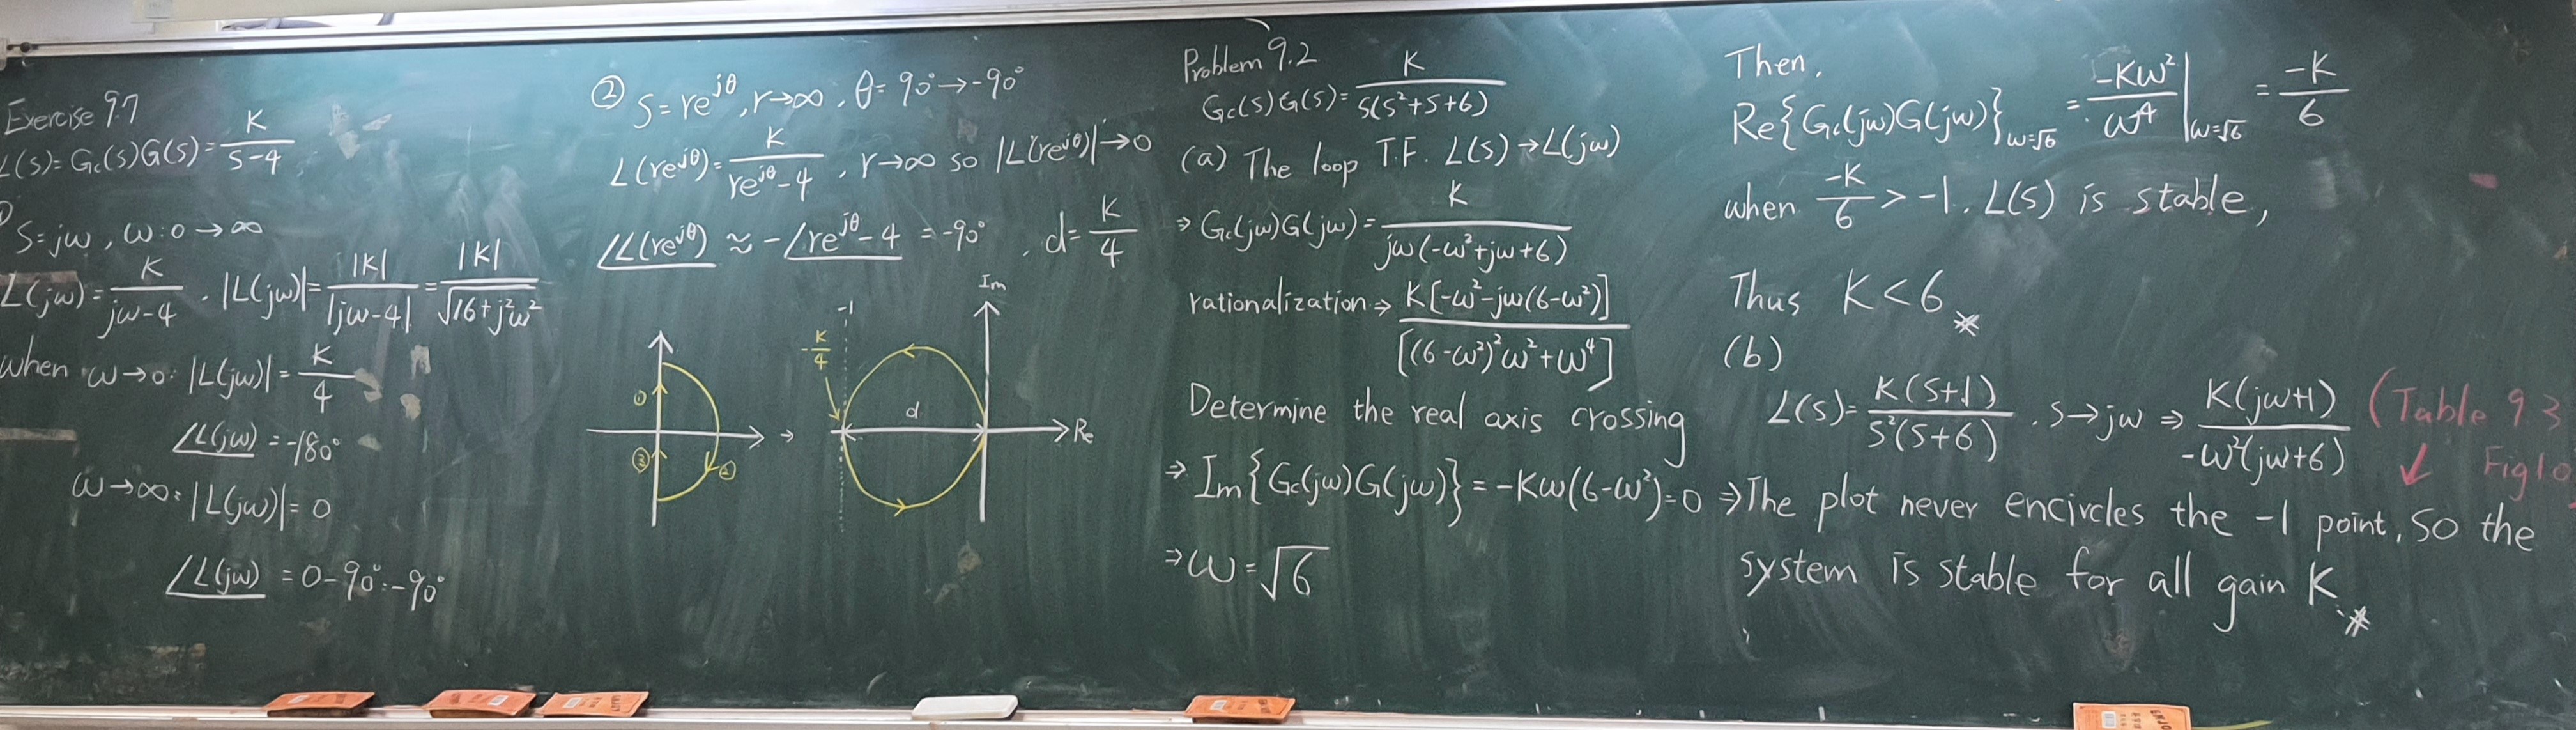 Exercise 9.7
L(s)=Gc(s)G(s)=K/(s-4)
①
S=jω, ω:0→∞
L(jω)=K/(jω-4), |L(jω)|=|K|/|jω-4|=|K|/√(16+j²ω²)
when ω→0: |L(jω)|=K/4
∠L(jω) = -180°
ω→∞: |L(jω)|=0
∠L(jω) = 0-90°=-90°
② S=re^{jθ}, r→∞, θ=90°→-90°
L(re^{jθ})=K/(re^{jθ}-4), r→∞ so |L(re^{jθ})|→0
∠L(re^{jθ}) ≈ -∠re^{jθ}-4 = -90°, d=K/4
① ② ③ →
-1
-K/4
d
Im
Re
Problem 9.2
Gc(s)G(s)=K/(s(s²+s+6))
(a) The loop T.F. L(s)→L(jω)
⇒ Gc(jω)G(jω)=K/(jω(-ω²+jω+6))
rationalization⇒ K[-ω²-jω(6-ω²)]/[(6-ω²)²ω²+ω⁴]
Determine the real axis crossing
⇒ Im{Gc(jω)G(jω)}=-Kω(6-ω²)=0
⇒ω=√6
Then,
Re{Gc(jω)G(jω)}_{ω=√6} = -Kω²/ω⁴|_{ω=√6} = -K/6
when -K/6 > -1, L(s) is stable,
Thus K<6 *
(b)
L(s)=K(s+1)/(s²(s+6)), s→jω ⇒ K(jω+1)/(-ω²(jω+6)) (Table 9.3
↓ Fig10
⇒The plot never encircles the -1 point, so the
system is stable for all gain K *